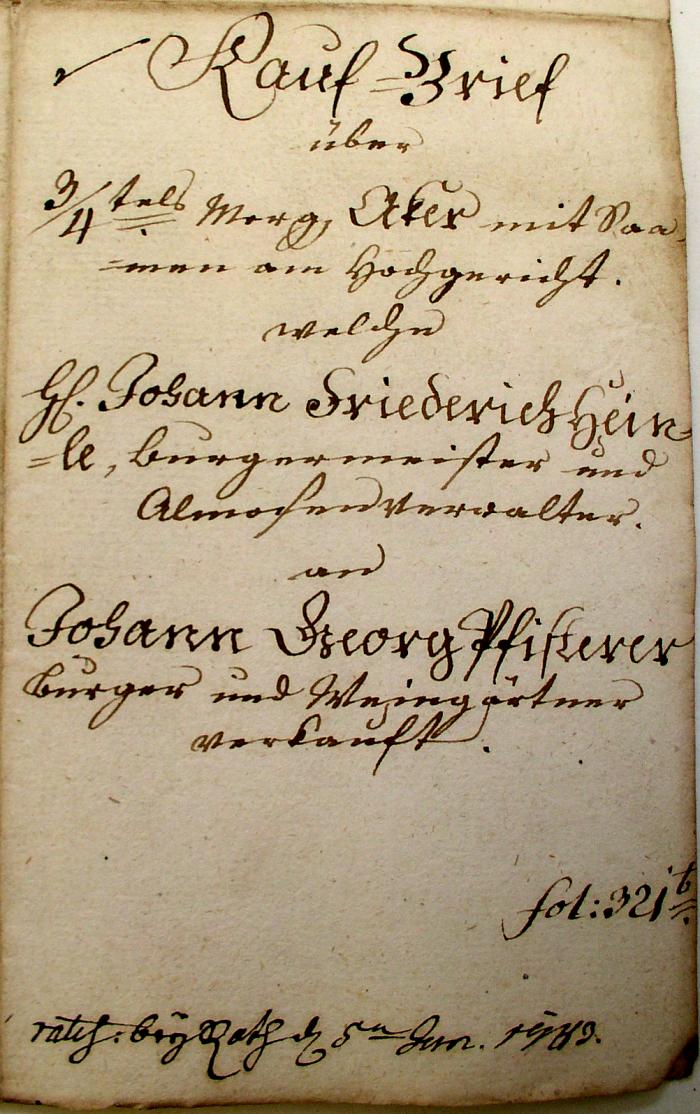 Kauf=Brief
über
3/4 tels Morg. Aker mit Saa-
=men am Hochgericht.
welche
H. Johann Friederich Hein=
=le, burgermeister und
Almosenverwalter.
an
Johann Georg Pfisterer
burger und Weingärtner
verkauft.
fol: 321 b
ratif: beÿ Rath d. 5n Jun. 1783.